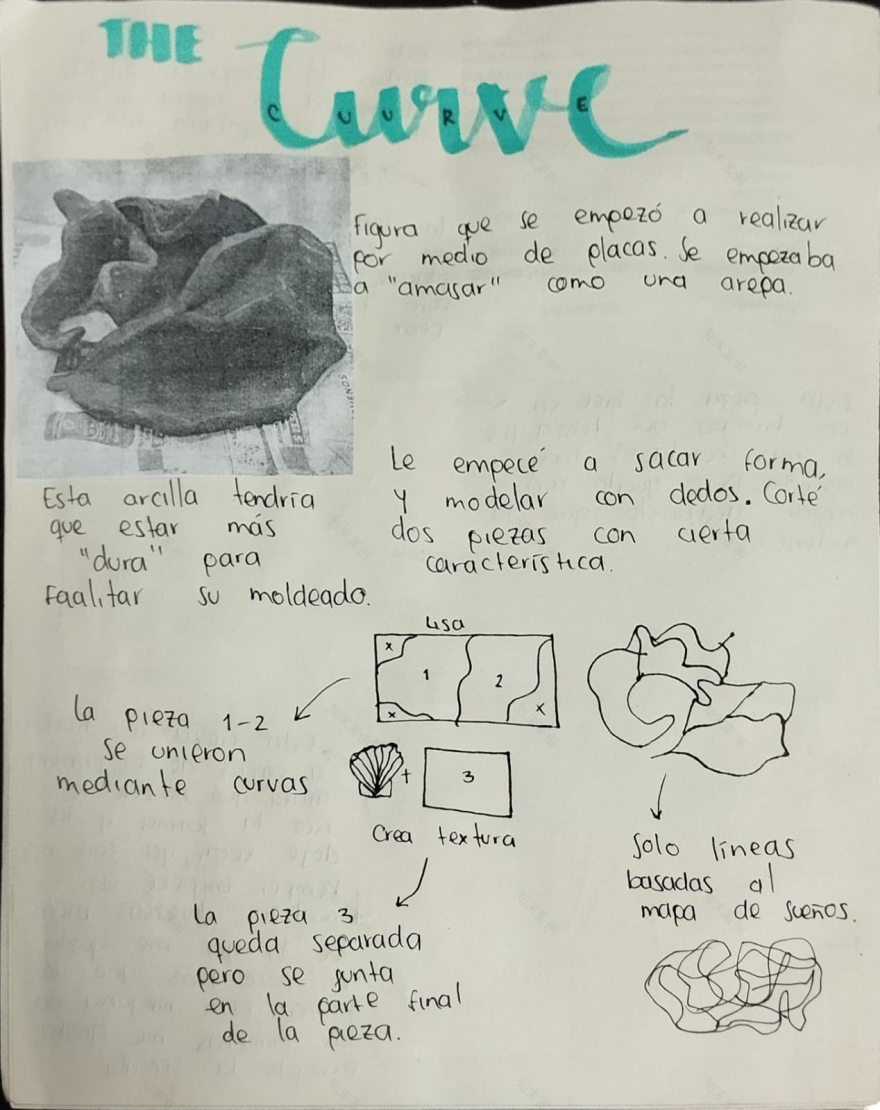 THE
Curve
C U U R V E
Figura que se empezó a realizar
por medio de placas. Se empezaba
a "amasar" como una arepa.
Le empecé a sacar forma,
y modelar con dedos. Corté
dos piezas con cierta
característica.
Esta arcilla tendría
que estar más
"dura" para
facilitar su moldeado.
Lisa
x
1
2
x
x
La pieza 1-2
se unieron
mediante curvas
+
3
Crea textura
La pieza 3
queda separada
pero se junta
en la parte final
de la pieza.
Solo líneas
basadas al
mapa de sueños.